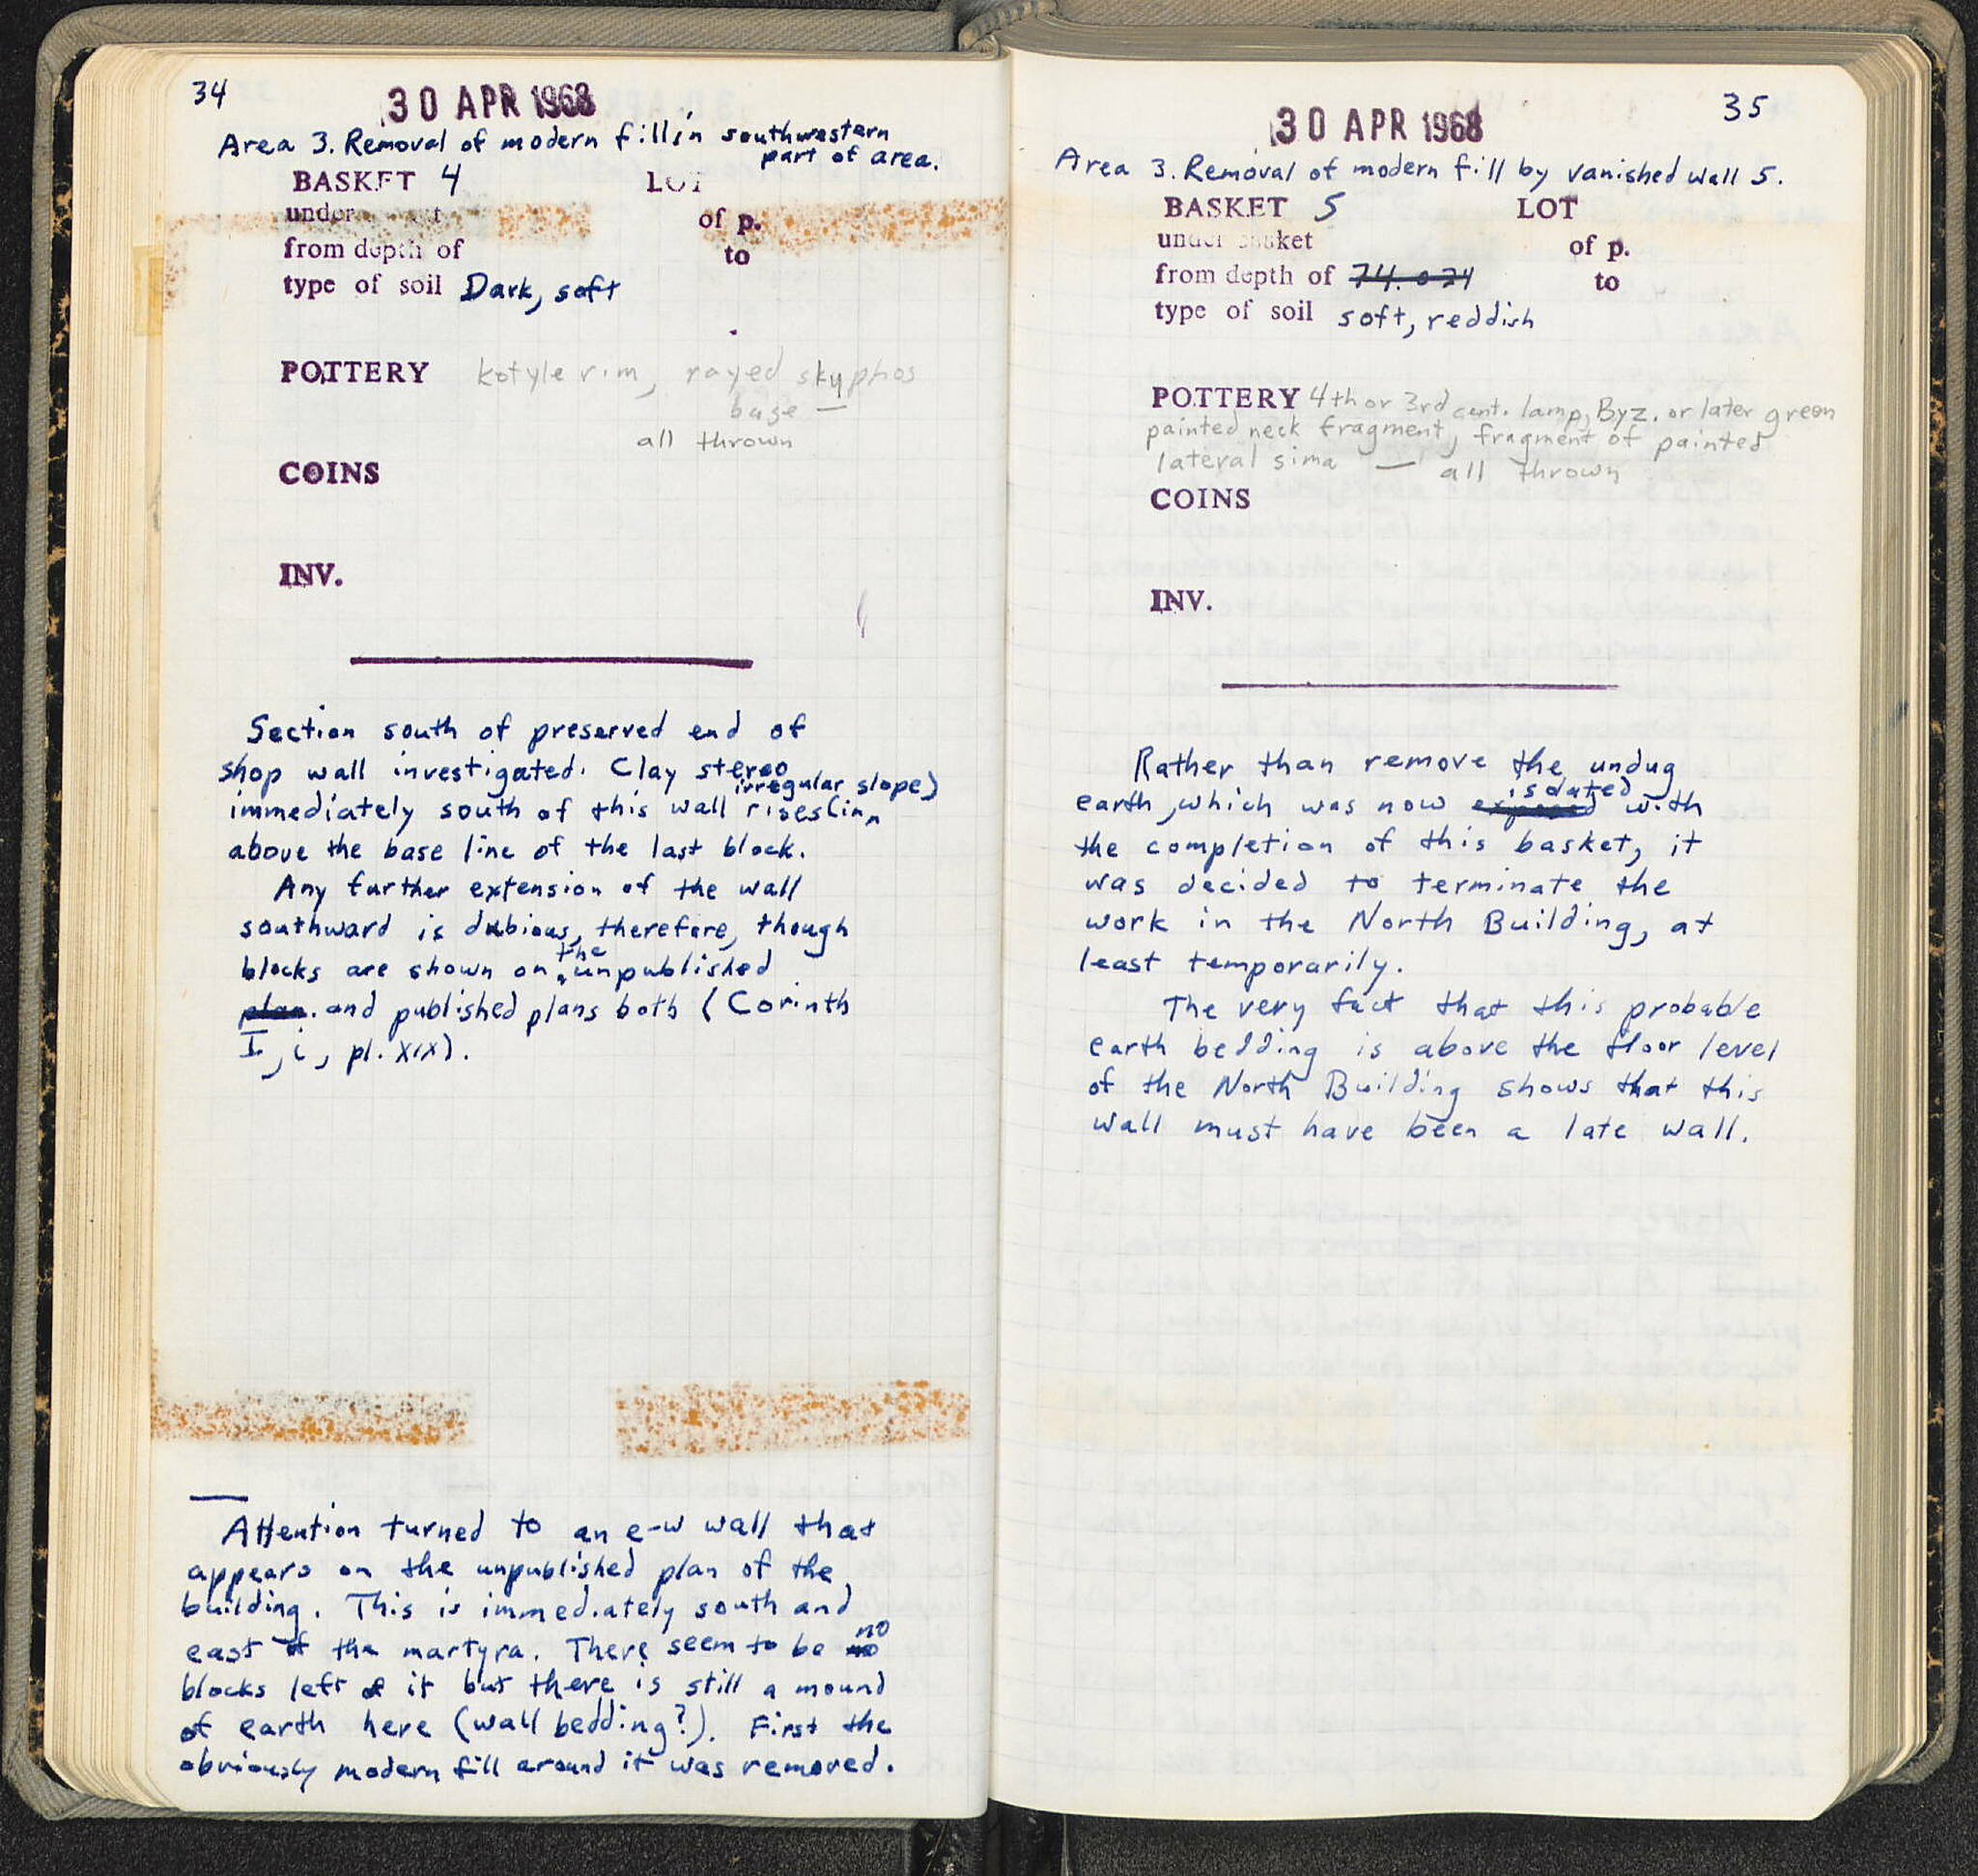 34
30 APR 1968
Area 3. Removal of modern fill in southwestern
part of area.
BASKET 4 LOT
under
of p.
from depth of to
type of soil Dark, soft
POTTERY kotyle rim, rayed skyphos
base —
all thrown
COINS
INV.
Section south of preserved end of
shop wall investigated. Clay stereo
irregular slope)
immediately south of this wall rises (in
above the base line of the last block.
Any further extension of the wall
southward is dubious, therefore, though
the
blocks are shown on unpublished
plan. and published plans both (Corinth
I, i, pl. XIX).
Attention turned to an e-w wall that
appears on the unpublished plan of the
building. This is immediately south and
east of the martyra. There seem to be no
blocks left of it but there is still a mound
of earth here (wall bedding?). First the
obviously modern fill around it was removed.
35
30 APR 1968
Area 3. Removal of modern fill by vanished wall 5.
BASKET 5 LOT
under basket of p.
from depth of 74.074 to
type of soil soft, reddish
POTTERY 4th or 3rd cent. lamp, Byz. or later green
painted neck fragment, fragment of painted
lateral sima — all thrown
COINS
INV.
Rather than remove the undug
isolated
earth, which was now exposed with
the completion of this basket, it
was decided to terminate the
work in the North Building, at
least temporarily.
The very fact that this probable
earth bedding is above the floor level
of the North Building shows that this
wall must have been a late wall.